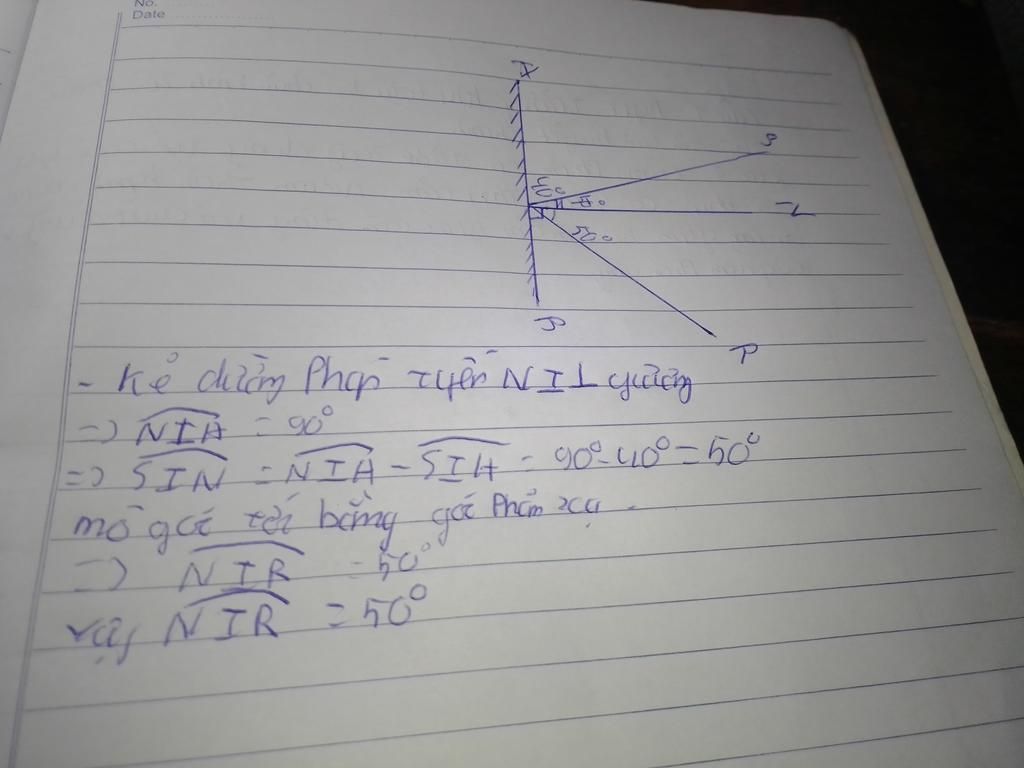 No.
Date
A
S
40°
50°
B
- Kẻ đường Pháp tuyến NI⊥ gương
=> NIA = 90°
=> SIN = NIA - SIA = 90° - 40° = 50°
mà góc tới bằng góc Phản xạ.
=> NIR = 50°
vậy NIR = 50°